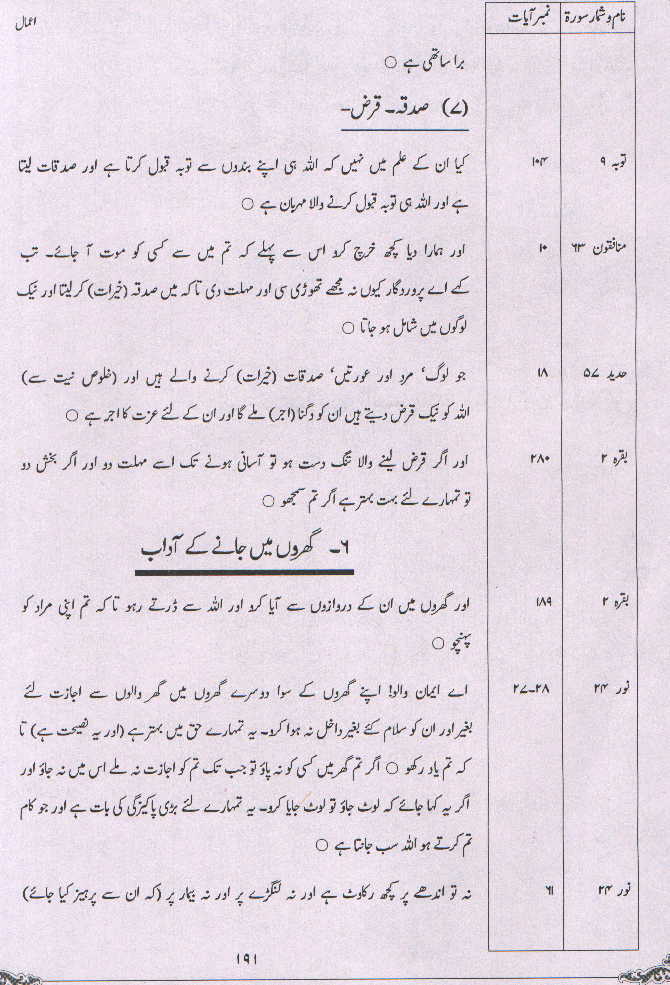 نام و شمار سورۃ نمبر آیات اعمال
برا ساتھی ہے ○
(۷) صدقہ۔ قرض۔
توبہ ۹ ۱۰۴ کیا ان کے علم میں نہیں کہ اللہ ہی اپنے بندوں سے توبہ قبول کرتا ہے اور صدقات لیتا
ہے اور اللہ ہی توبہ قبول کرنے والا مہربان ہے ○
منافقون ۶۳ ۱۰ اور ہمارا دیا کچھ خرچ کرو اس سے پہلے کہ تم میں سے کسی کو موت آ جائے۔ تب
کہے اے پروردگار کیوں نہ مجھے تھوڑی سی اور مہلت دی تاکہ میں صدقہ (خیرات) کر لیتا اور نیک
لوگوں میں شامل ہو جاتا ○
حدید ۵۷ ۱۸ جو لوگ‘ مرد اور عورتیں‘ صدقات (خیرات) کرنے والے ہیں اور (خلوص نیت سے)
اللہ کو نیک قرض دیتے ہیں ان کو دگنا (اجر) ملے گا اور ان کے لئے عزت کا اجر ہے ○
بقرہ ۲ ۲۸۰ اور اگر قرض لینے والا تنگ دست ہو تو آسانی ہونے تک اسے مہلت دو اور اگر بخش دو
تو تمہارے لئے بہت بہتر ہے اگر تم سمجھو ○
۶۔ گھروں میں جانے کے آداب
بقرہ ۲ ۱۸۹ اور گھروں میں ان کے دروازوں سے آیا کرو اور اللہ سے ڈرتے رہو تا کہ تم اپنی مراد کو
پہنچو ○
نور ۲۴ ۲۷-۲۸ اے ایمان والو! اپنے گھروں کے سوا دوسرے گھروں میں گھر والوں سے اجازت لئے
بغیر اور ان کو سلام کئے بغیر داخل نہ ہوا کرو۔ یہ تمہارے حق میں بہتر ہے (اور یہ نصیحت ہے) تا
کہ تم یاد رکھو ○ اگر تم گھر میں کسی کو نہ پاؤ تو جب تک تم کو اجازت نہ ملے اس میں نہ جاؤ اور
اگر یہ کہا جائے کہ لوٹ جاؤ تو لوٹ جایا کرو۔ یہ تمہارے لئے بڑی پاکیزگی کی بات ہے اور جو کام
تم کرتے ہو اللہ سب جانتا ہے ○
نور ۲۴ ۶۱ نہ تو اندھے پر کچھ رکاوٹ ہے اور نہ لنگڑے پر اور نہ بیمار پر (کہ ان سے پرہیز کیا جائے)
۱۹۱